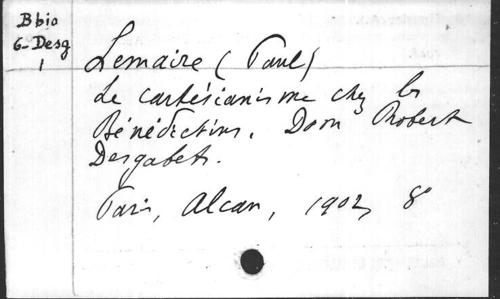 Bbio
6-Desg
1
Lemaire (Paul)
Le cartésianisme chez les
Bénédictins. Dom Robert
Desgabets.
Paris, Alcan, 1902, 8°